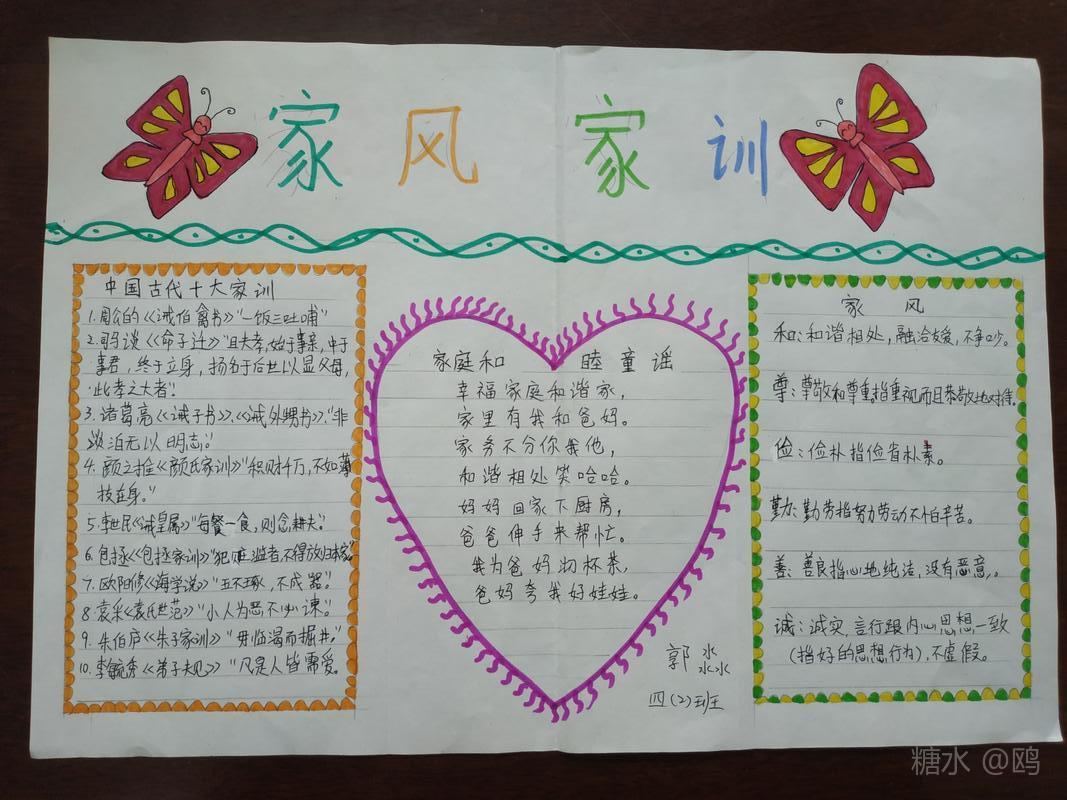 家风家训
中国古代十大家训
1.周公的《诫伯禽书》"一饭三吐哺"
2.司马谈《命子迁》"且夫孝,始于事亲,中于
事君,终于立身,扬名于后世以显父母,
此孝之大者"。
3.诸葛亮《诫子书》、《诫外甥书》:"非
淡泊无以明志。"
4.颜之推《颜氏家训》"积财千万,不如薄
技在身。"
5.李世民《诫皇属》"每餐一食,则念耕夫"。
6.包拯《包拯家训》"犯赃滥者,不得放归本家"
7.欧阳修《诲学说》"玉不琢,不成器"。
8.袁采《袁氏世范》"小人为恶不必谏"。
9.朱伯庐《朱子家训》"毋临渴而掘井。"
10.李毓秀《弟子夫见》"凡是人皆需爱。
家庭和睦童谣
幸福家庭和谐家,
家里有我和爸妈。
家务不分你我他,
和谐相处笑哈哈。
妈妈回家下厨房,
爸爸伸手来帮忙。
我为爸妈沏杯茶,
爸妈夸我好娃娃。
郭淼
四(2)班
家风
和:和谐相处,融洽友爱,不争吵。
尊:尊敬和尊重,指重视而且恭敬地对待。
俭:俭朴指俭省朴素。
勤:勤劳指努力劳动不怕辛苦。
善:善良指心地纯洁,没有恶意。
诚:诚实,言行跟内心思想一致
(指好的思想,行为),不虚假。
糖水 @鸥